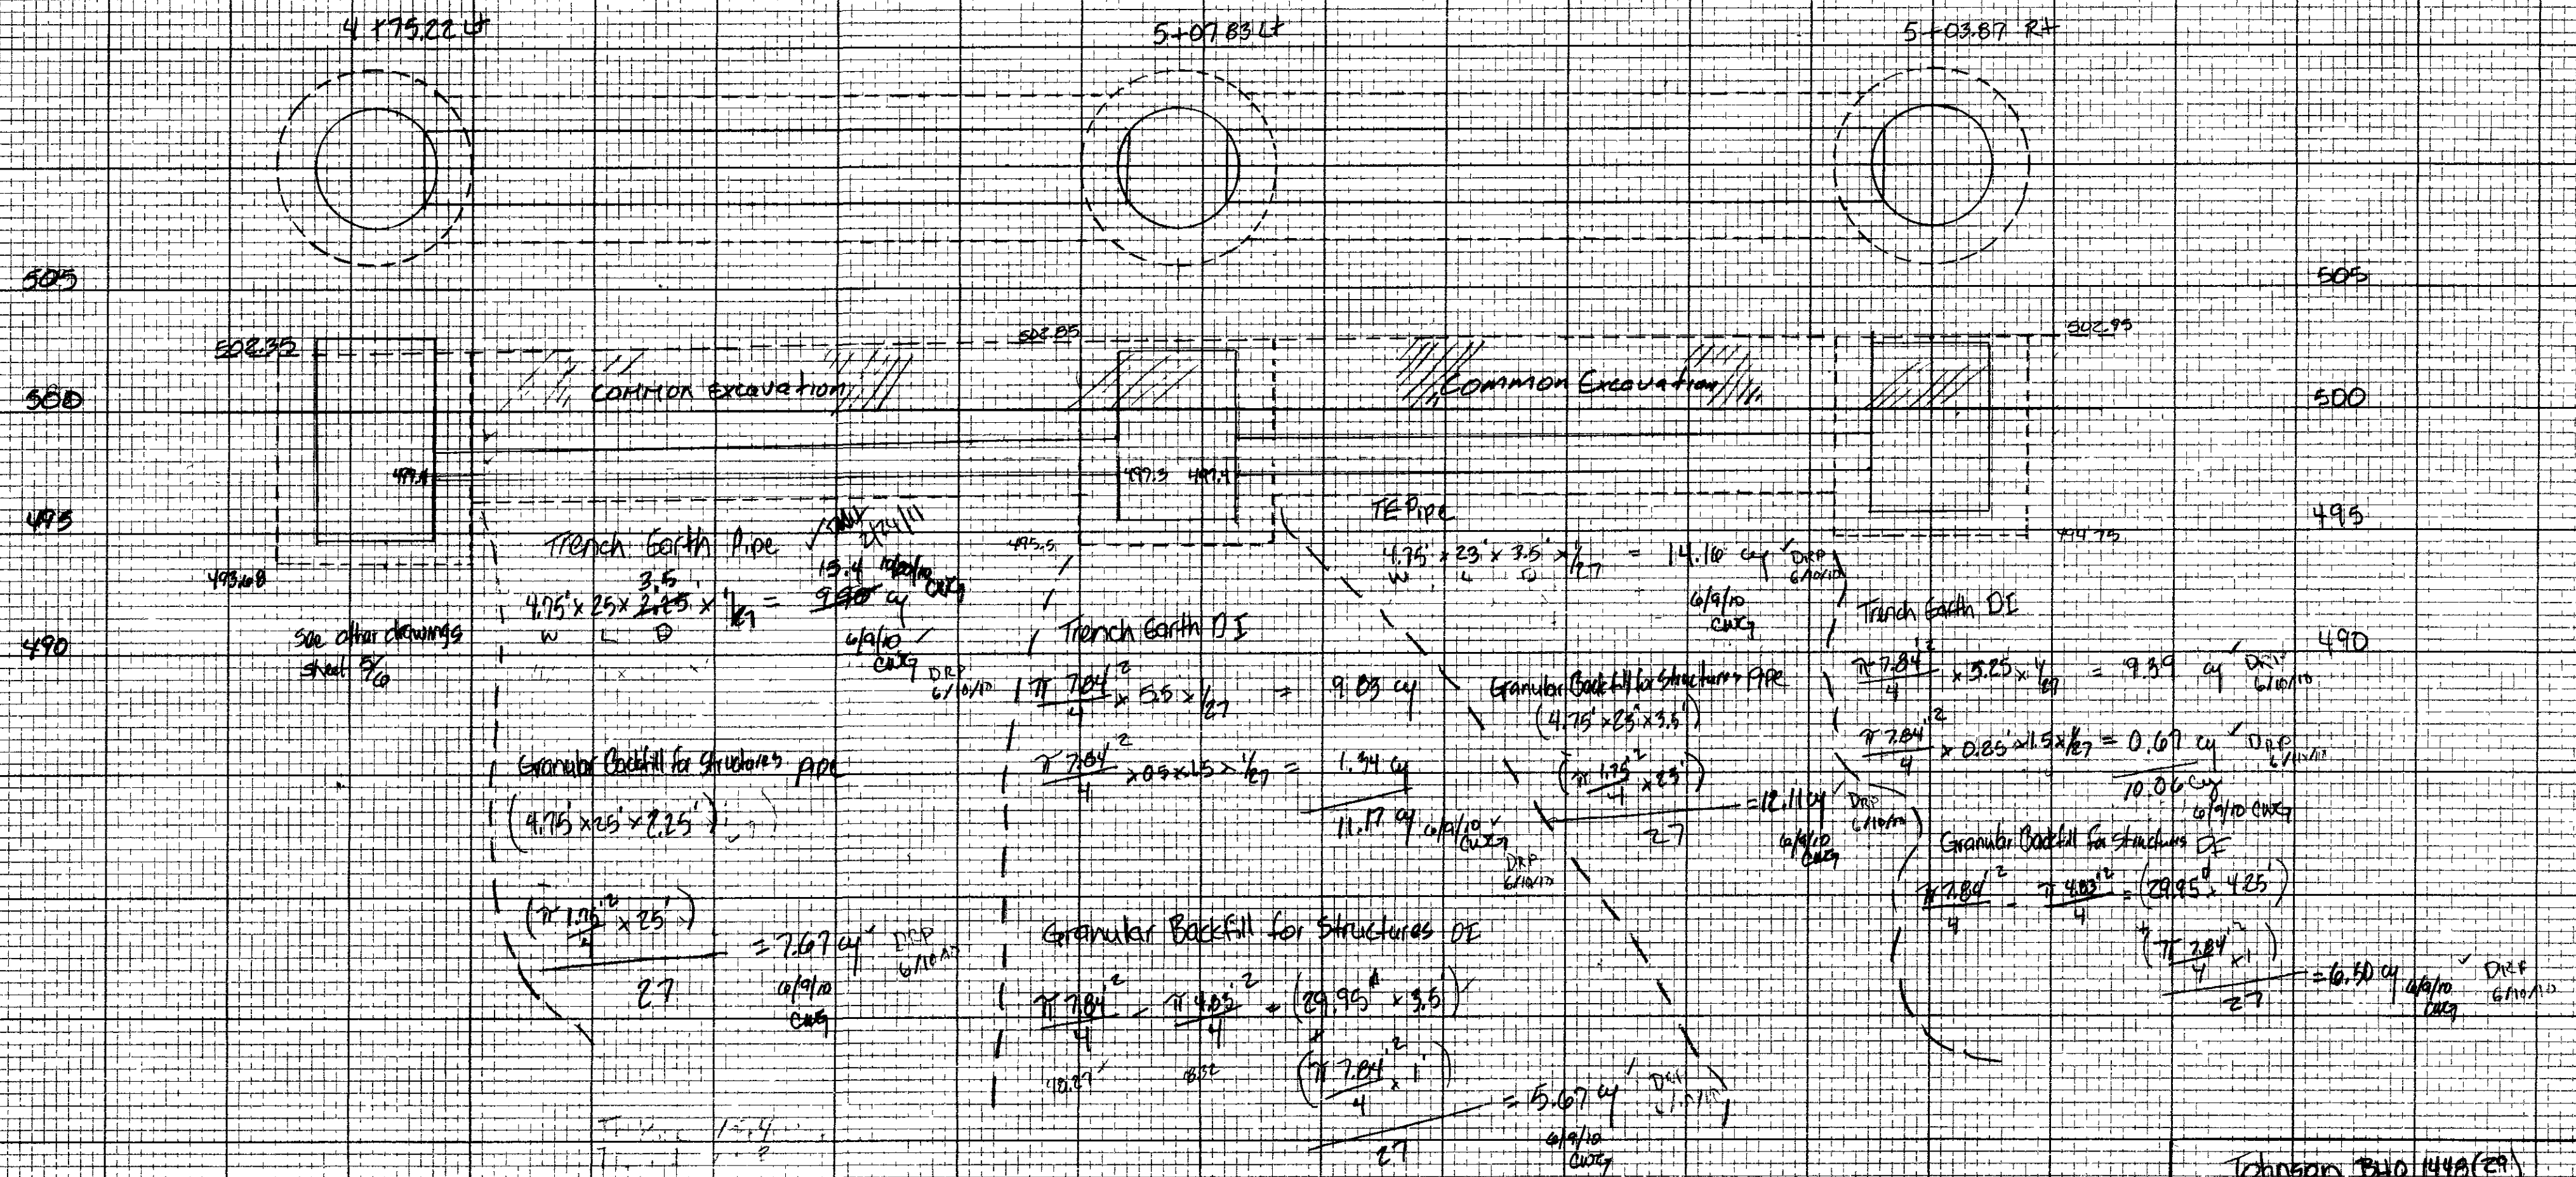 4+75.22 Lt
5+07.83 Lt
5+03.87 Rt
505
505
502.35
502.85
502.95
500
Common Excavation
Common Excavation
500
497.3 497.4
495
495
495.5
494.75
493.68
see other drawings
sheet 5/6
490
490
Trench Earth Pipe
3.5
15.4 10/20/10 CWG
4.75' x 25 x 2.25' x 1/27 = 9.90 cy
W L D
6/9/10
CWG
DRP
6/10/10
Granular Backfill for Structures pipe
(4.75' x 25' x 2.25')
-
(π 1.75'²/4 x 25')
27
= 7.67 cy
6/9/10
CWG
DRP
6/10/10
Trench Earth DI
π 7.84'²/4 x 5.5 x 1/27 = 9.83 cy
π 7.84'²/4 x 0.5 x 1.5 x 1/27 = 1.34 cy
11.17 cy 6/9/10
CWG
DRP
6/10/10
Granular Backfill for Structures DI
π 7.84'²/4 - π 4.83'²/4 = (29.95 x 3.5')
48.27 18.32
+
(π 7.84'²/4 x 1')
27
= 5.67 cy
6/9/10
CWG
DRP
TE Pipe
4.75' x 23' x 3.5' x 1/27 = 14.16 cy
W L D
DRP
6/10/10
6/9/10
CWG
Granular Backfill for Structures Pipe
(4.75' x 23' x 3.5')
-
(π 1.75'²/4 x 23')
27
= 12.11 cy
6/9/10
CWG
DRP
6/10/10
Trench Earth DI
π 7.84'²/4 x 5.25 x 1/27 = 9.39 cy
DRP
6/10/10
π 7.84'²/4 x 0.25' x 1.5 x 1/27 = 0.67 cy
DRP
6/10/10
10.06 cy
6/9/10 CWG
Granular Backfill for Structures DI
π 7.84'²/4 - π 4.83'²/4 = (29.95 x 4.25')
+
(π 7.84'²/4 x 1')
27
= 6.50 cy
6/9/10
CWG
DRP
6/10/10
Johnson BHO 1448(29)